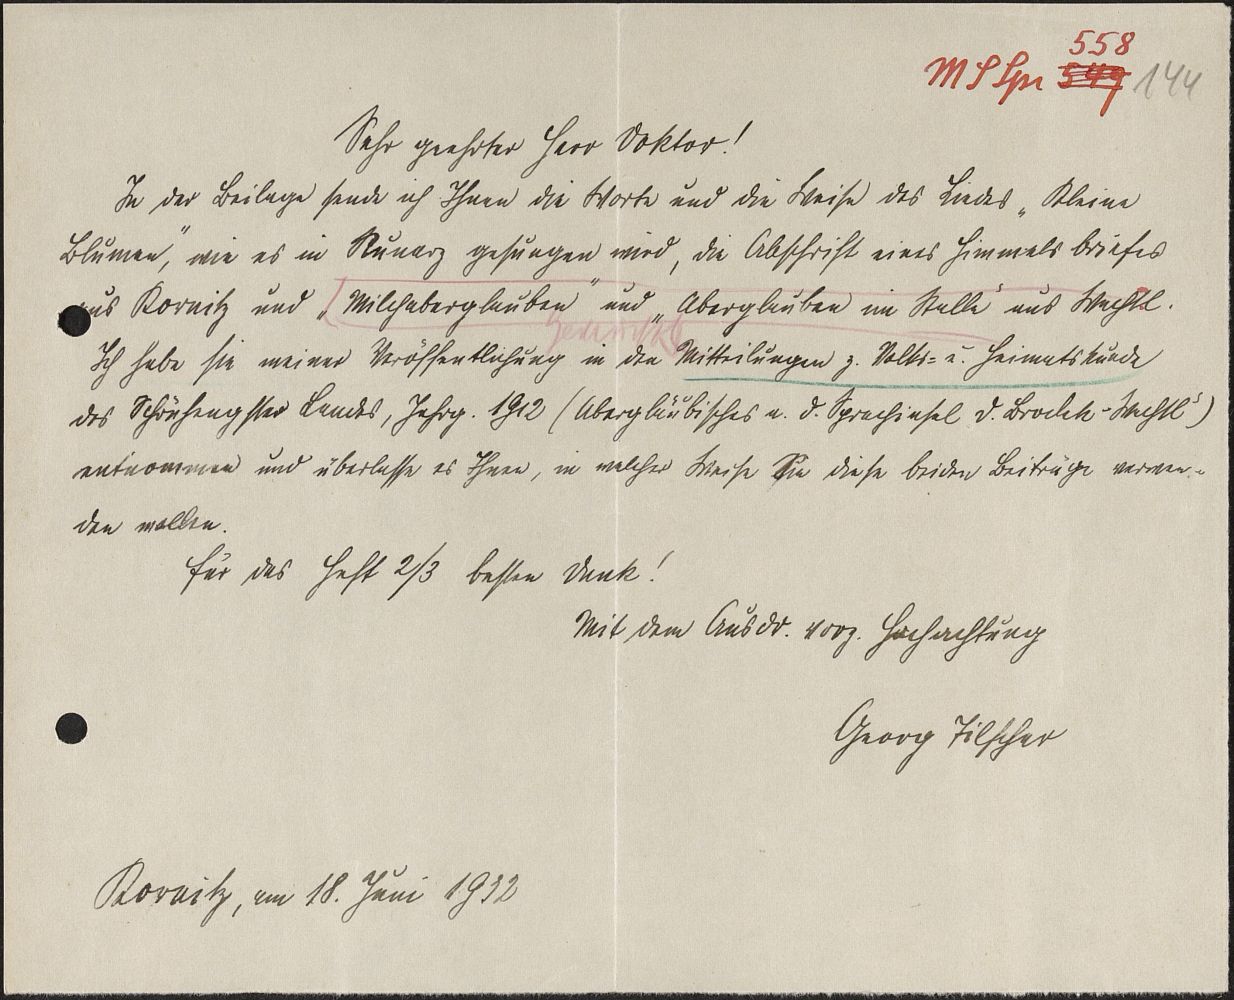 558
M S Spr 549 144
Sehr geehrter Herr Doktor!
In der Beilage sende ich Ihnen die Worte und die Weise des Liedes „Kleine
Blumen", wie es in Runarz gesungen wird, die Abschrift eines Himmelsbriefes
aus Kornitz und „Milchaberglauben" und „Aberglauben im Stalle" aus Wachtl.
Ich habe sie meiner Veröffentlichung in den Mitteilungen z. Volks= u. Heimatskunde
des Schönhengster Landes, Jahrg. 1912 (Abergläubisches a. d. Sprachinsel D. Brodek-Wachtl)
entnommen und überlasse es Ihnen, in welcher Weise Sie diese beiden Beiträge verwen-
den wollen.
Für das Heft 2/3 besten Dank!
Mit dem Ausdr. vorz. Hochachtung
Georg Tilscher
Kornitz, am 18. Juni 1932